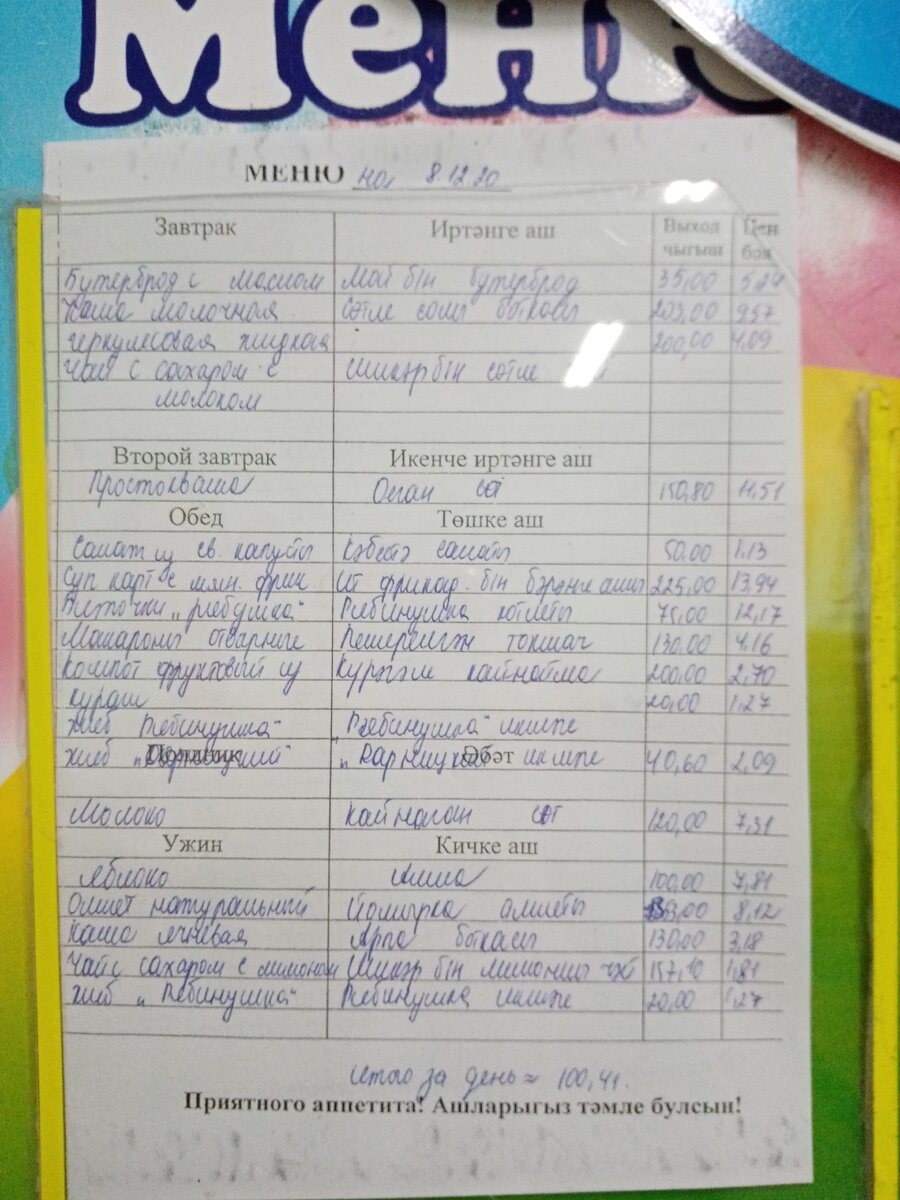 Меню
МЕНЮ на 8.12.20
Завтрак Иртәнге аш Выход чыгыш Цен бәя
Бутерброд с маслом Май бін бутерброд 35,00 5,24
Каша молочная Сөтле солы боткасы 203,00 9,57
геркулесовая жидкая 200,00 4,09
Чай с сахаром с Шикәр бін сөтле
молоком
Второй завтрак Икенче иртәнге аш
Простокваша Оеган сөт 150,80 11,51
Обед Төшке аш
Салат из св. капусты Кәбестә салаты 50,00 1,13
Суп карт с мян. фрик. Ит фрикад. бін бәрәнге ашы 225,00 13,94
Биточки „рябушка" Рябинушка котлеты 75,00 12,17
Макароны отварные Пешерелгән токмач 130,00 4,16
Компот фруктовый из Күрәгәм кайнатма 200,00 2,70
кураги 20,00 1,27
Хлеб Рябинушка" „Рябинушка" икмәге
Хлеб „Дарницкий" „Дарницкий Әбәт икмәге 40,60 2,09
Молоко Кайнаган сөт 120,00 7,31
Ужин Кичке аш
Яблоко Алма 100,00 7,81
Омлет натуральный Йомырка омлеты 8,12
Каша ячневая Арпа боткасы 130,00 3,18
Чай с сахаром с лимоном Шикәр бін лимонлы чәй 157,10 1,81
Хлеб „Рябинушка" Рябинушка икмәге 20,00 1,27
Итого за день ≈ 100,41.
Приятного аппетита! Ашларыгыз тәмле булсын!